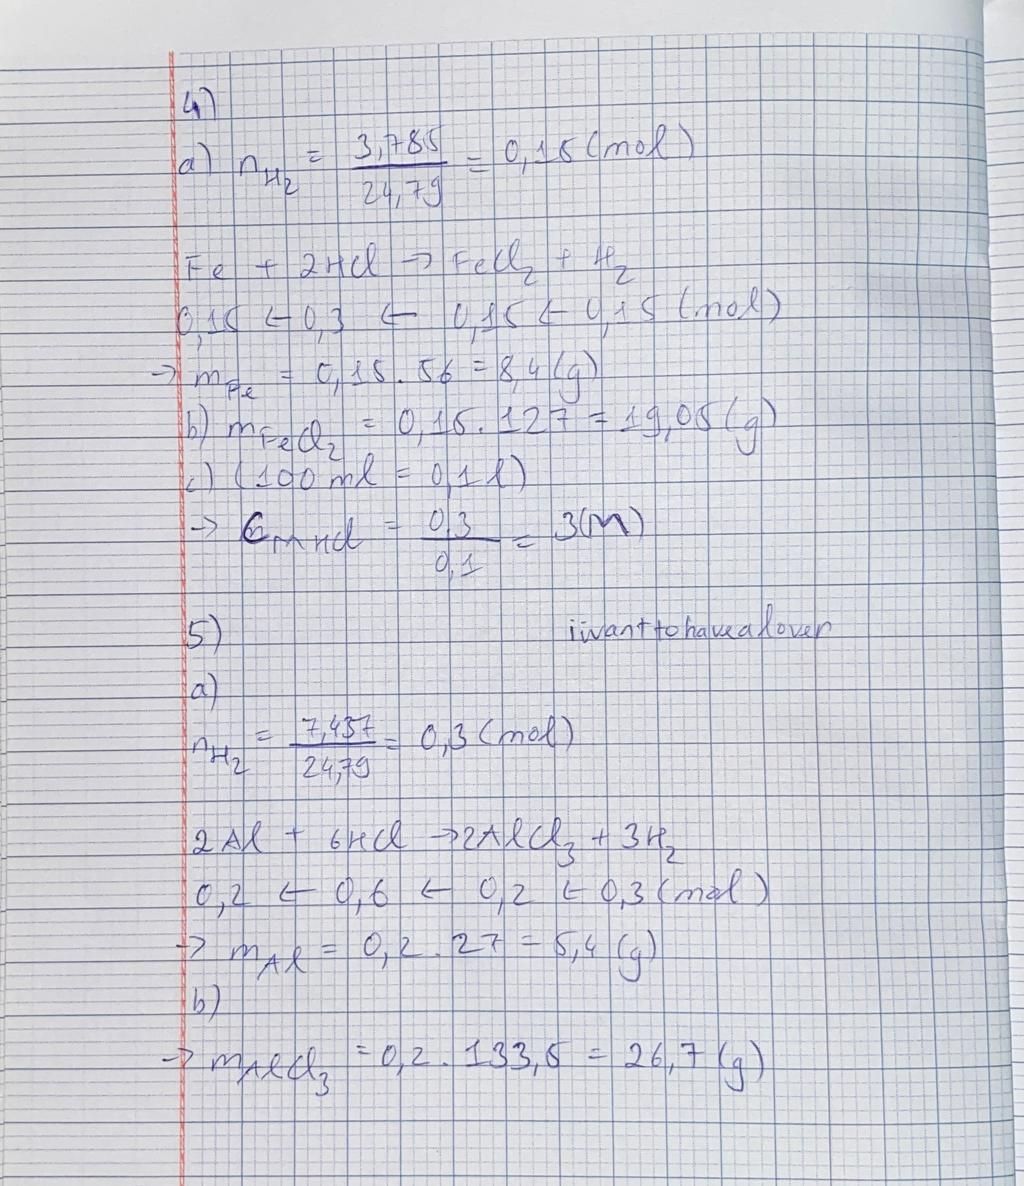 4)
a) nH₂ = 3,785/24,79 = 0,15 (mol)
Fe + 2HCl → FeCl₂ + H₂
0,15 ← 0,3 ← 0,15 ← 0,15 (mol)
→ mFe = 0,15 . 56 = 8,4 (g)
b) mFeCl₂ = 0,15 . 127 = 19,05 (g)
c) (100 ml = 0,1 l)
→ CM HCl = 0,3/0,1 = 3 (M)
5) iwanttohavealover
a)
nH₂ = 7,437/24,79 = 0,3 (mol)
2Al + 6HCl → 2AlCl₃ + 3H₂
0,2 ← 0,6 ← 0,2 ← 0,3 (mol)
→ mAl = 0,2 . 27 = 5,4 (g)
b)
→ mAlCl₃ = 0,2 . 133,5 = 26,7 (g)